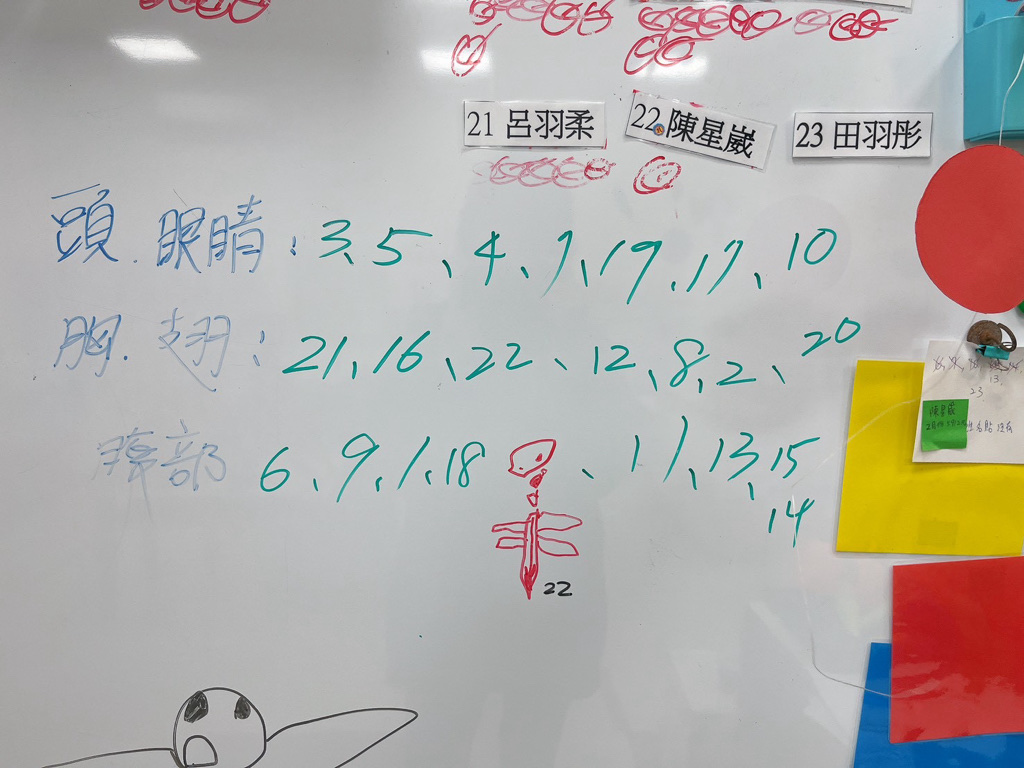 21 呂羽柔
22 陳星崴
23 田羽彤
頭、眼睛：3、5、4、7、19、17、10
胸、翅：21、16、22、12、8、2、20
腹部 6、9、1、18、11、13、15
14
22
13
23
陳星崴